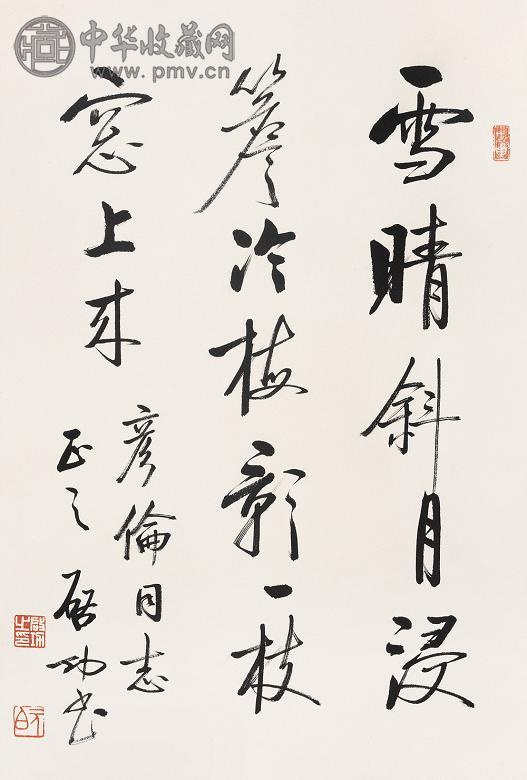 中华收藏网
www.pmv.cn
雪晴斜月浸
簷冷梅影一枝
窓上来
彦倫同志
正之 啓功书